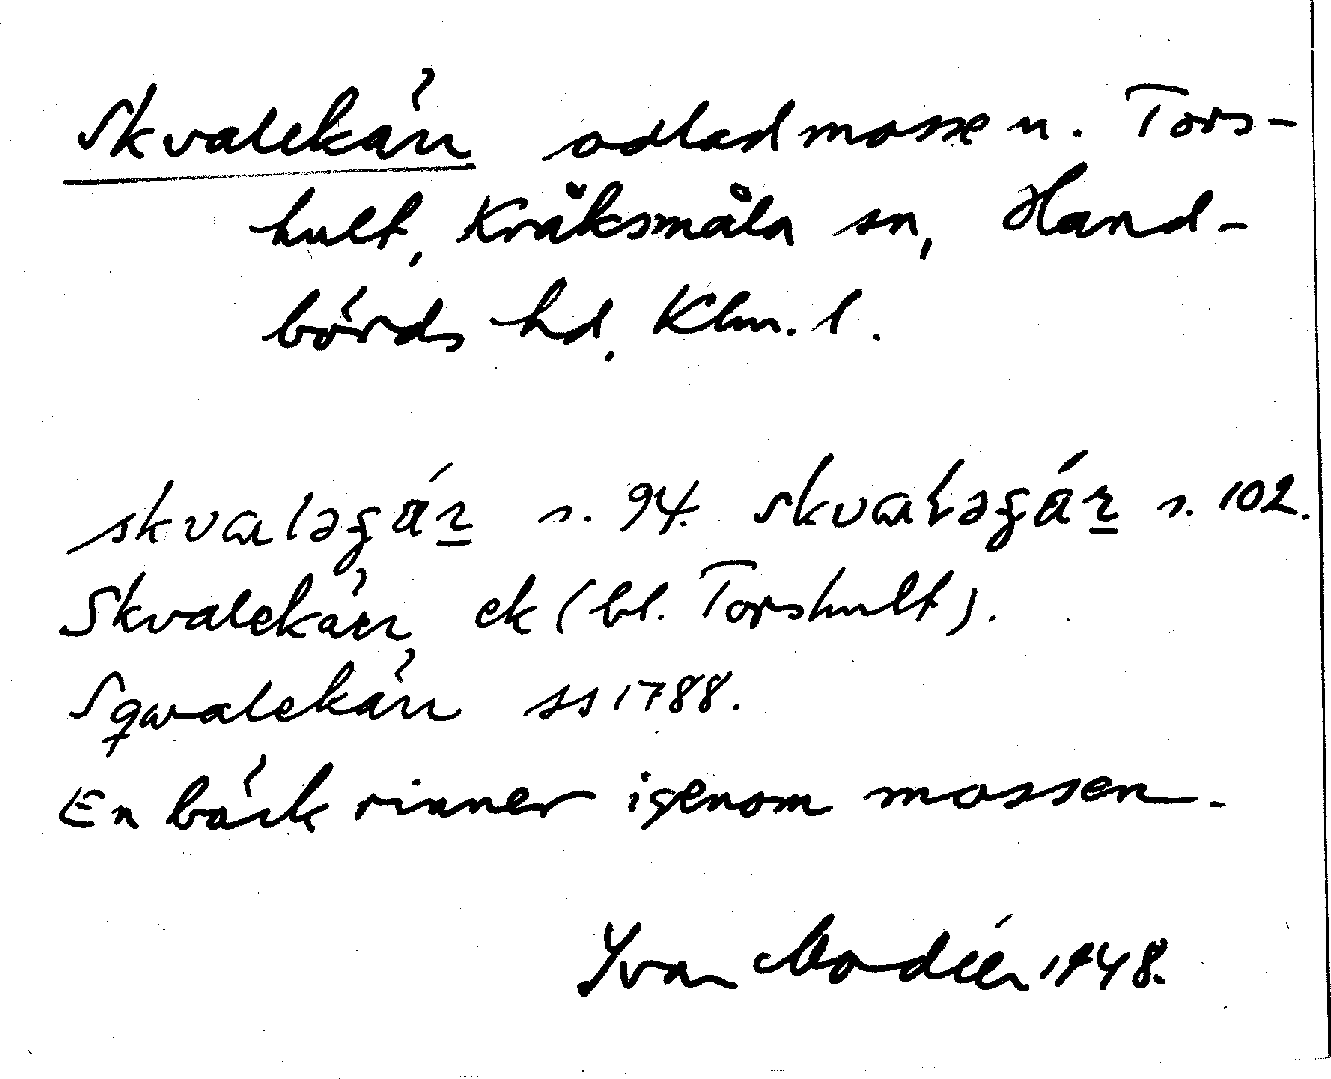 Skvalekärr odlad mosse u. Tors-
hult, Kråksmåla sn, Hand-
börds hd, Klm. l.
s. 94. s. 102.
Skvalekärr ek (bl. Torshult).
Sqwalekärr ss 1788.
En bäck rinner igenom mossen.
Yvar Modéer 1948.